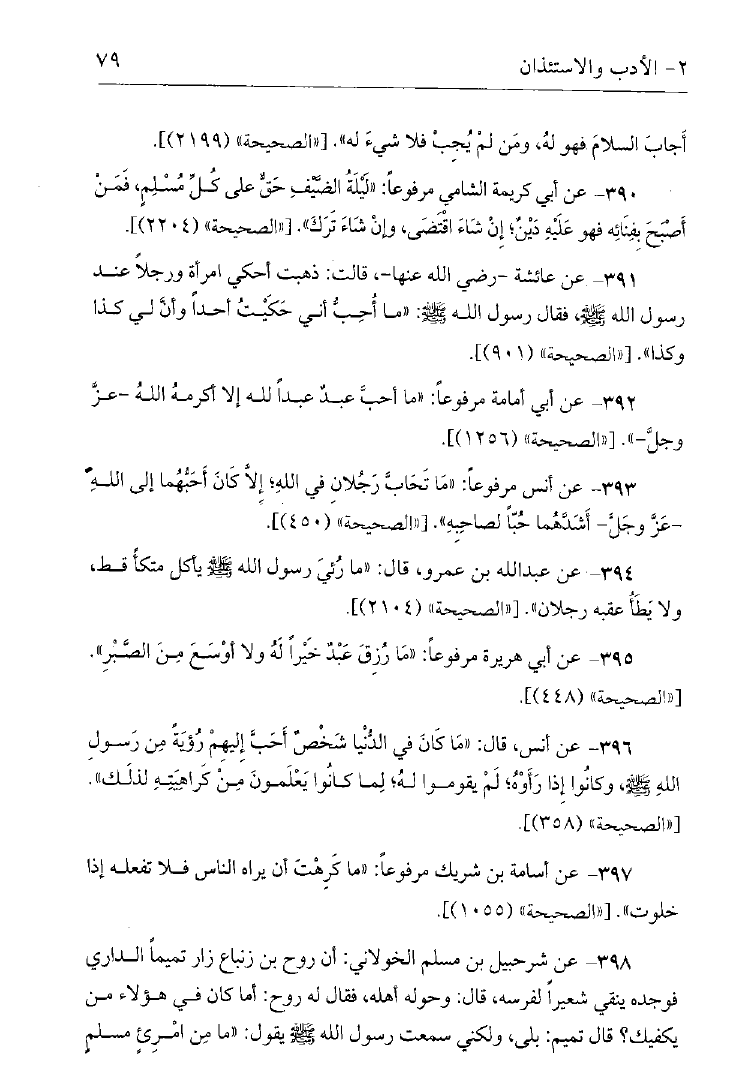 ٢- الأدب والاستئذان
٧٩
أجابَ السلامَ فهو لهُ، ومَن لمْ يُجِبْ فلا شيءَ له». [«الصحيحة» (٢١٩٩)].
٣٩٠- عن أبي كريمة الشامي مرفوعاً: «لَيْلَةُ الضَّيْفِ حَقٌّ على كُلِّ مُسْلِمٍ، فَمَنْ
أَصْبَحَ بِفِنَائِه فهو عَلَيْهِ دَيْنٌ؛ إنْ شَاءَ اقْتَضَى، وإنْ شَاءَ تَرَكَ». [«الصحيحة» (٢٢٠٤)].
٣٩١- عن عائشة -رضي الله عنها-، قالت: ذهبت أحكي امرأة ورجلاً عند
رسول الله ﷺ، فقال رسول الله ﷺ: «ما أُحِبُّ أني حَكَيْتُ أحداً وأنَّ لي كذا
وكذا». [«الصحيحة» (٩٠١)].
٣٩٢- عن أبي أمامة مرفوعاً: «ما أحبَّ عبدٌ عبداً لله إلا أكرمهُ اللهُ -عزَّ
وجلَّ-». [«الصحيحة» (١٢٥٦)].
٣٩٣- عن أنس مرفوعاً: «مَا تَحَابَّ رَجُلان في اللهِ؛ إلاَّ كَانَ أَحَبُّهُما إلى اللهِ
-عَزَّ وجَلَّ- أَشَدَّهُما حُبّاً لصاحِبِهِ». [«الصحيحة» (٤٥٠)].
٣٩٤- عن عبدالله بن عمرو، قال: «ما رُئيَ رسول الله ﷺ يأكل متكأً قط،
ولا يَطَأُ عقبه رجلان». [«الصحيحة» (٢١٠٤)].
٣٩٥- عن أبي هريرة مرفوعاً: «مَا رُزِقَ عَبْدٌ خَيْراً لَهُ ولا أوْسَعَ مِنَ الصَّبْرِ».
[«الصحيحة» (٤٤٨)].
٣٩٦- عن أنس، قال: «مَا كَانَ في الدُّنْيا شَخْصٌ أحَبَّ إليهِمْ رُؤيَةً مِن رَسولِ
اللهِ ﷺ، وكانُوا إذا رَأَوْهُ؛ لَمْ يقوموا لهُ؛ لِما كانُوا يَعْلَمونَ مِنْ كَرَاهِيَتِهِ لذلَك».
[«الصحيحة» (٣٥٨)].
٣٩٧- عن أسامة بن شريك مرفوعاً: «ما كَرِهْتَ أن يراه الناس فلا تفعله إذا
خلوت». [«الصحيحة» (١٠٥٥)].
٣٩٨- عن شرحبيل بن مسلم الخولاني: أن روح بن زنباع زار تميماً الداري
فوجده ينقي شعيراً لفرسه، قال: وحوله أهله، فقال له روح: أما كان في هؤلاء من
يكفيك؟ قال تميم: بلى، ولكني سمعت رسول الله ﷺ يقول: «ما مِن امْرِئٍ مسلمٍ